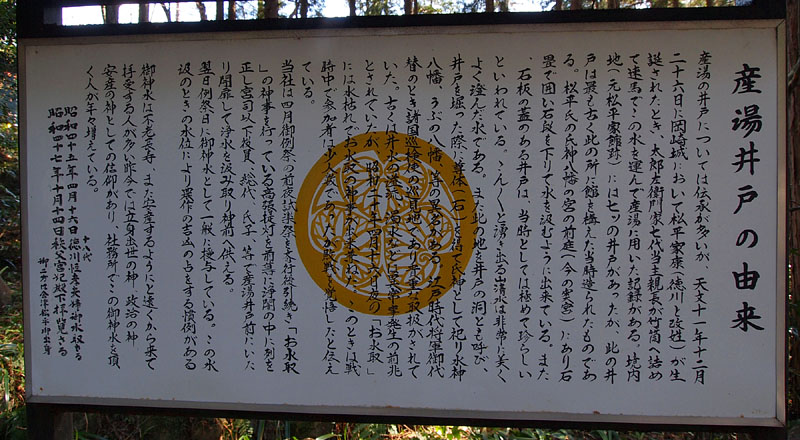 産湯井戸の由来
産湯の井戸については伝承が多いが、天文十一年十二月
二十六日に岡崎城において松平家康(徳川と改姓)が生
誕されたとき、太郎左衛門家七代当主親長が竹筒へ詰め
て速馬でこの水を運んで産湯に用いた記録がある。境内
地(元松平家館跡)には七ッの井戸があったが、此の井
戸は最も古く此の所に館を構えた当時造られたものであ
る。松平氏の氏神八幡の宮の前庭(今の奥宮)にあり石
畳で囲い石段を下りて水を汲むように出来ている。また
、石板の蓋のある井戸は、当時としては極めて珍らしい
といわれている。こんこんと湧き出る清水は非常に美く
よく澄んだ水である。また此の地を井戸の洞とも呼び、
井戸を掘った際、尊体(石)を得て氏神として祀り水神
八幡、うぶの八幡、等の異名がある。江戸時代将軍御代
替のとき諸国巡検使の巡見地であり貴重な取扱がされて
いた。古くは井水の混濁、渇水などは変事突発の前兆
とされていたが、昭和二十年四月十六日夜の「お水取」
には水枯れでお水取の神事が出来ね、このときは戦
時中で参加者は少く敗戦を覚悟したと伝え
ている。
当社は四月御例祭の前夜試楽祭を斉行後引続き「お水取
」の神事を行っている高張提灯を前導に浄闇の中に列を
正し宮司以下役員、総代、氏子、等で産湯井戸前にいた
り開扉して浄水を汲み取り神前へ供える。
翌日例祭日に御神水として一般に授与している。この水
汲のときの水位により農作の吉凶の占をする慣例がある
御神水は不老長寿、また安産するようにと遠くから来て
拝受する人が多い昨今では立身出世の神、政治の神
安産の神としての信仰があり、社務所でこの御神水を頂
く人が年々増えている。
十八代
昭和四十五年四月十六日徳川恒孝氏御水取する
昭和四十七年十月十四日秩父宮妃殿下拝覧さる